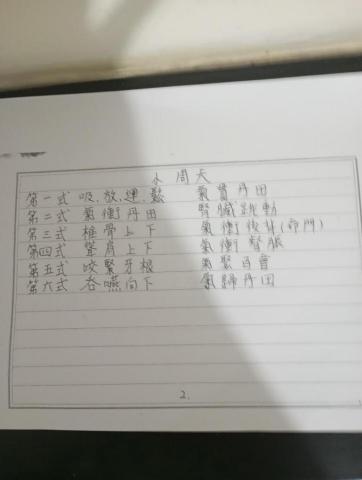 小周天
第一式 吸,放,運,鬆 氣貫丹田
第二式 氣衝丹田 腎臟跳動
第三式 椎骨上下 氣衝後林(命門)
第四式 聳肩上下 氣衝督脈
第五式 咬緊牙根 氣聚百會
第六式 吞嚥向下 氣歸丹田
2.